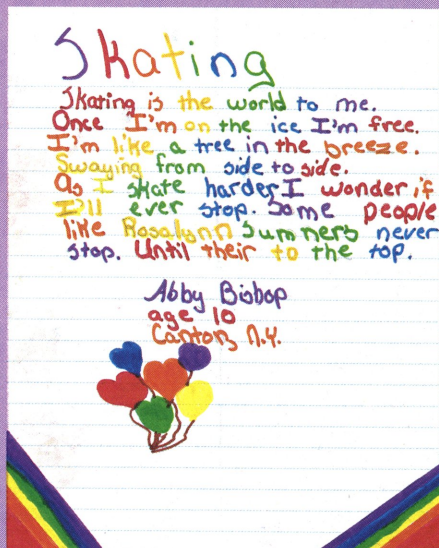 Skating
Skating is the world to me.
Once I'm on the ice I'm free.
I'm like a tree in the breeze.
Swaying from side to side.
As I skate harder I wonder if
I'll ever stop. Some people
like Rosalynn Sumners never
stop. Until their to the top.
Abby Bishop
age 10
Canton, N.Y.